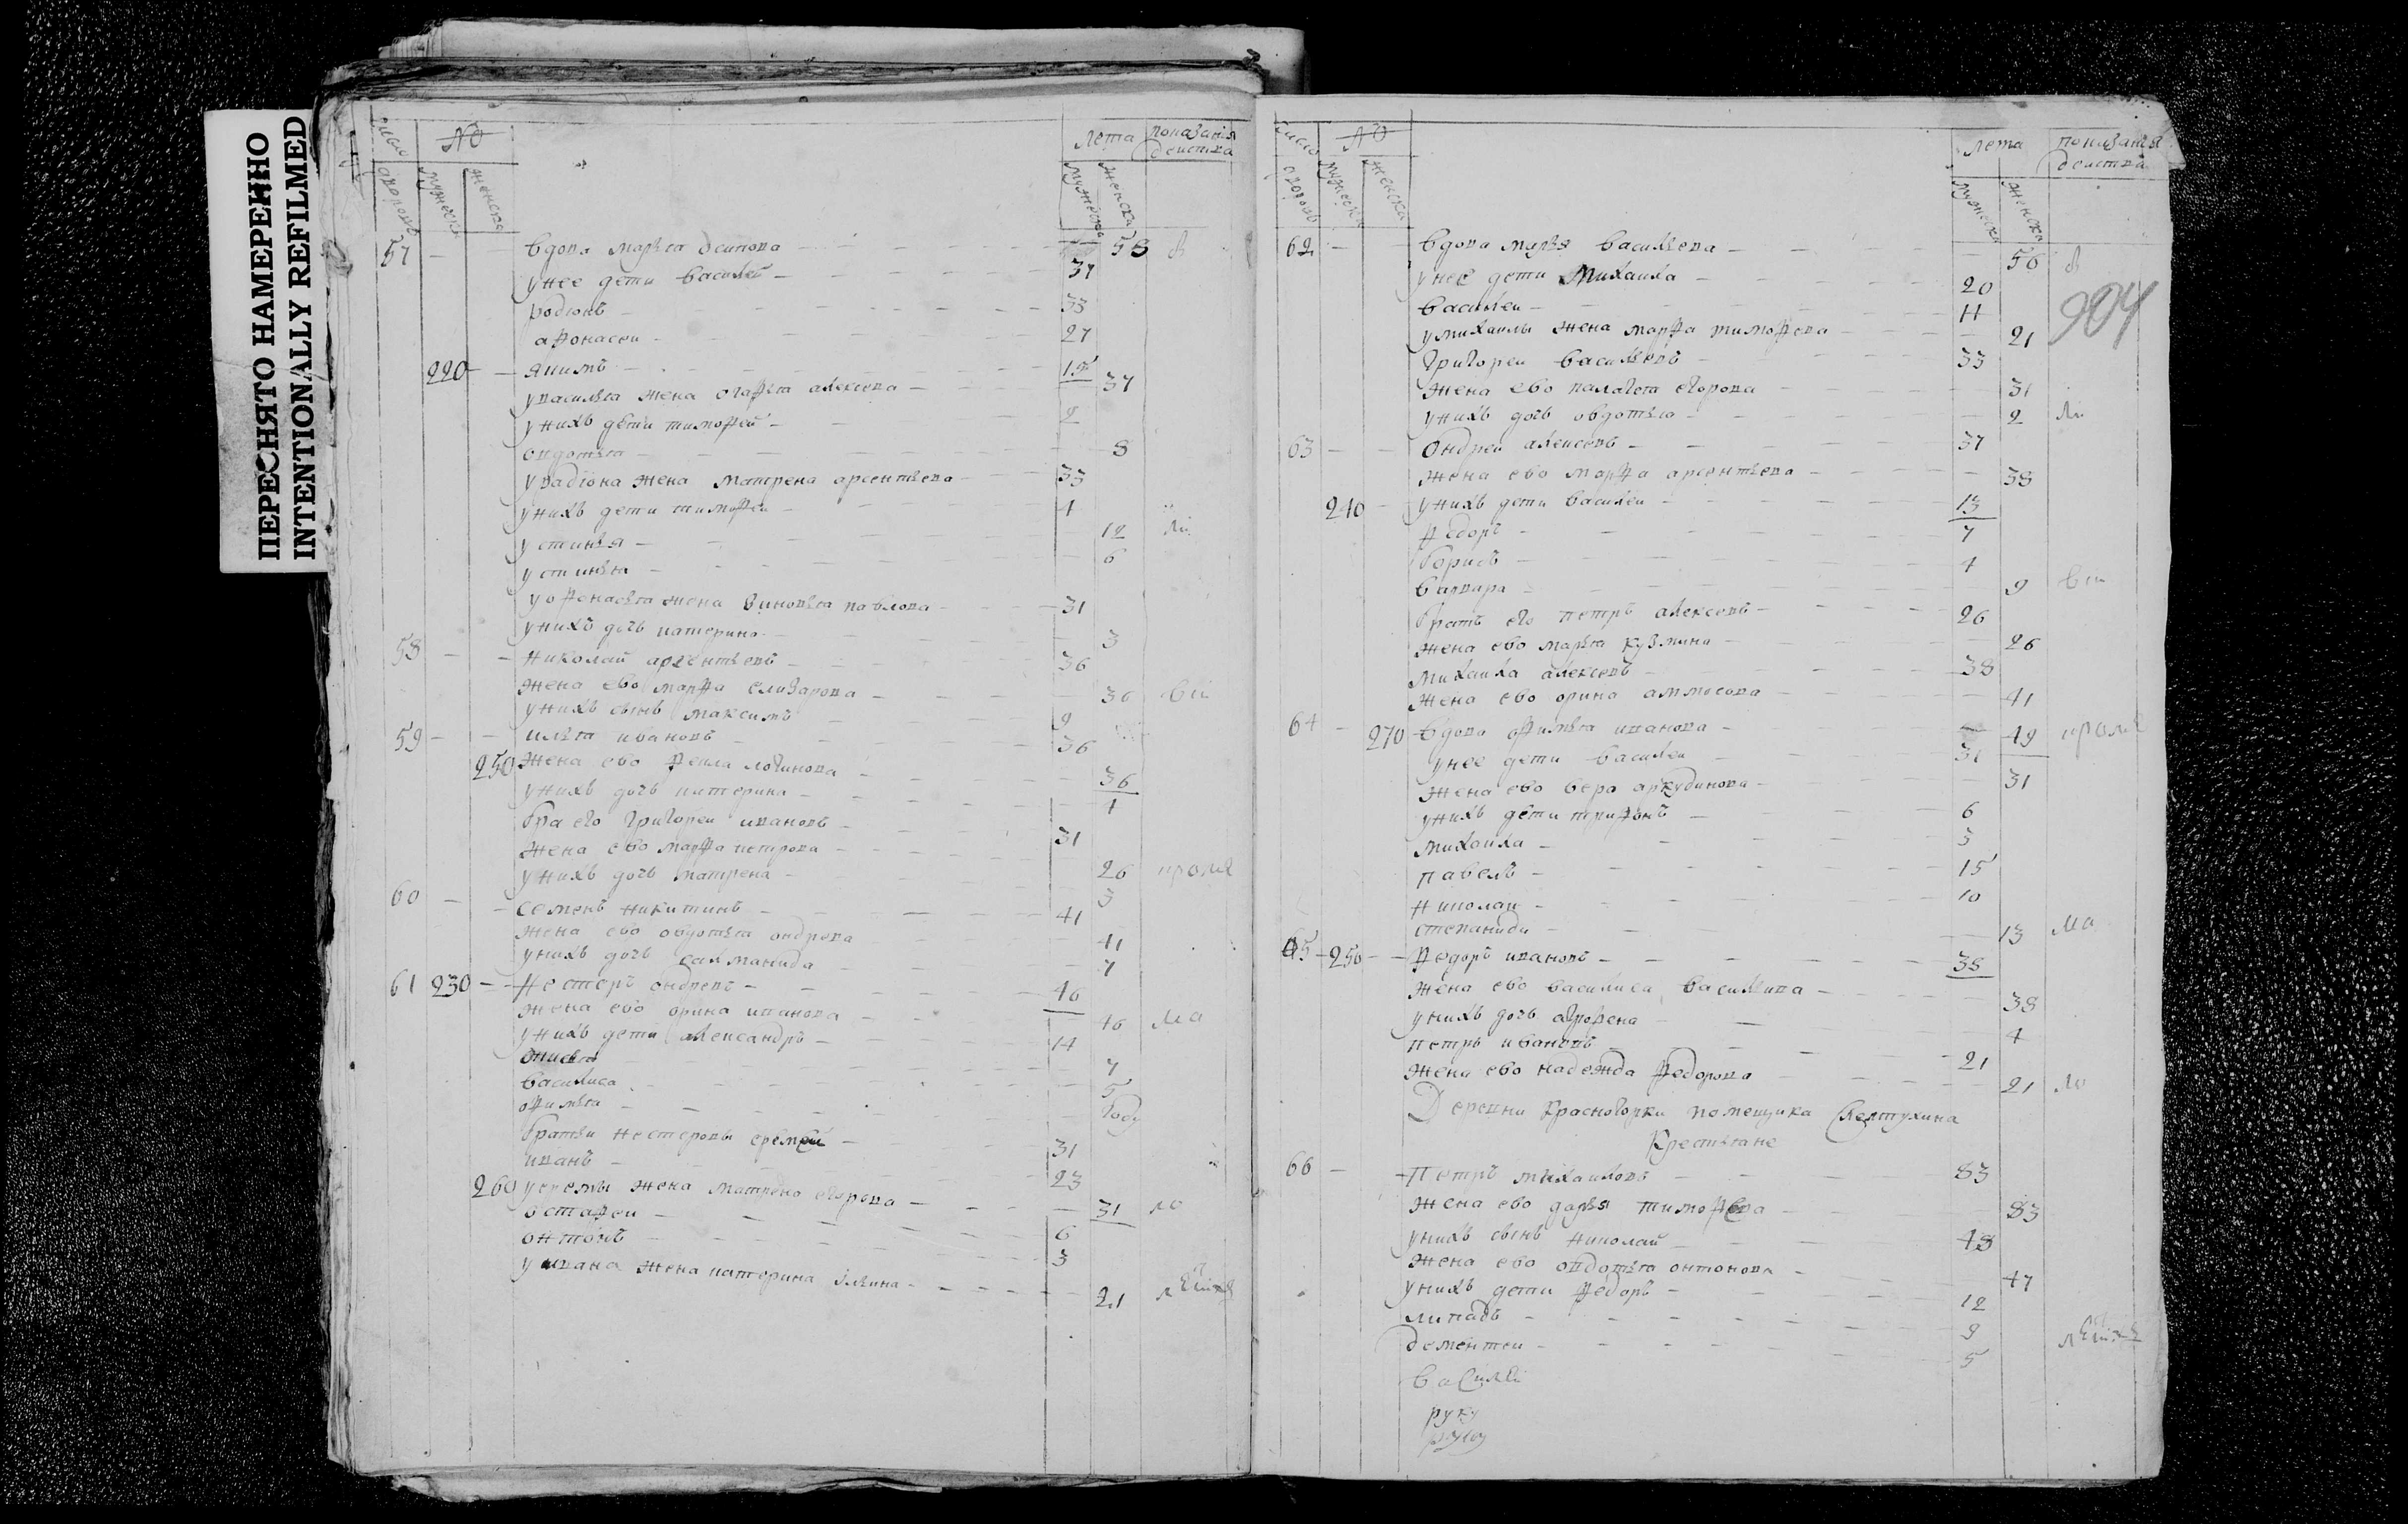 ПЕРЕСНЯТО НАМЕРЕННО
INTENTIONALLY REFILMED
число дворовъ № мужеска женска лета мужеска женска показанiя действа
57 вдова марья осипова 58
у нее дети василей 37
родiонъ 33
афонасеи 27
220 якимъ 15
у василья жена огафья алексева 37
у нихъ дети тимофей 2
овдотья 8
у радiона жена матрена арсентьева 33
у нихъ дети тимофеи 1
устинья 12
устинья 6
у офонасья жена зиновья павлова 31
у нихъ дочь катерина 3
58 николай арсентьевъ 36
жена ево марфа елизарова 36
у нихъ сынъ максимъ 9
59 илья ивановъ 36
250 жена ево фекла логинова 36
у нихъ дочь катерина 1
бра его григореи ивановъ 31
жена ево марфа петрова 26
у нихъ дочь матрена 3
60 семенъ никитинъ 41
жена ево овдотья ондрева 41
у нихъ дочь саломанида 7
61 230 несторъ ондревъ 46
жена ево орина иванова 46
у нихъ дети александръ 14
7
василиса 5
офимья году
братьи нестеровы еремей 31
иванъ 23
260 у еремы жена матрена егорова 31
остафеи 6
онтонъ 3
у ивана жена катерина ильина 21
число дворовъ № мужеска женска лета мужеска женска показанiя действа
904
62 вдова марья васильева 56
у нее дети михаила 20
василеи 11
у михаилы жена марфа тимофева 21
григореи васильевъ 33
жена ево палагея егорова 31
у нихъ дочь овдотья 2
63 ондреи алексевъ 37
жена ево марфа арсентьева 38
240 у нихъ дети василеи 13
федоръ 7
борисъ 1
варвара 9
братъ его петръ алексевъ 26
жена ево марья кузмина 26
михаила алексевъ 38
жена ево орина аммосова 41
64 270 вдова офимья иванова 49
у нее дети василеи 31
жена ево вера аркудинова 31
у нихъ дети трифонъ 6
михаила 3
павелъ 15
николаи 10
степанида 13
65 250 федоръ ивановъ 38
жена ево василиса васильева 38
у нихъ дочь огрофена 4
петръ ивановъ 21
жена ево надежда федорова 21
Деревни красногорки помещика
крестьяне
66 петръ михаиловъ 83
жена ево дарья тимофева 83
у нихъ сынъ николай 48
жена ево овдотья онтонова 47
у нихъ дети федоръ 12
9
дементеи 5
василей
руку